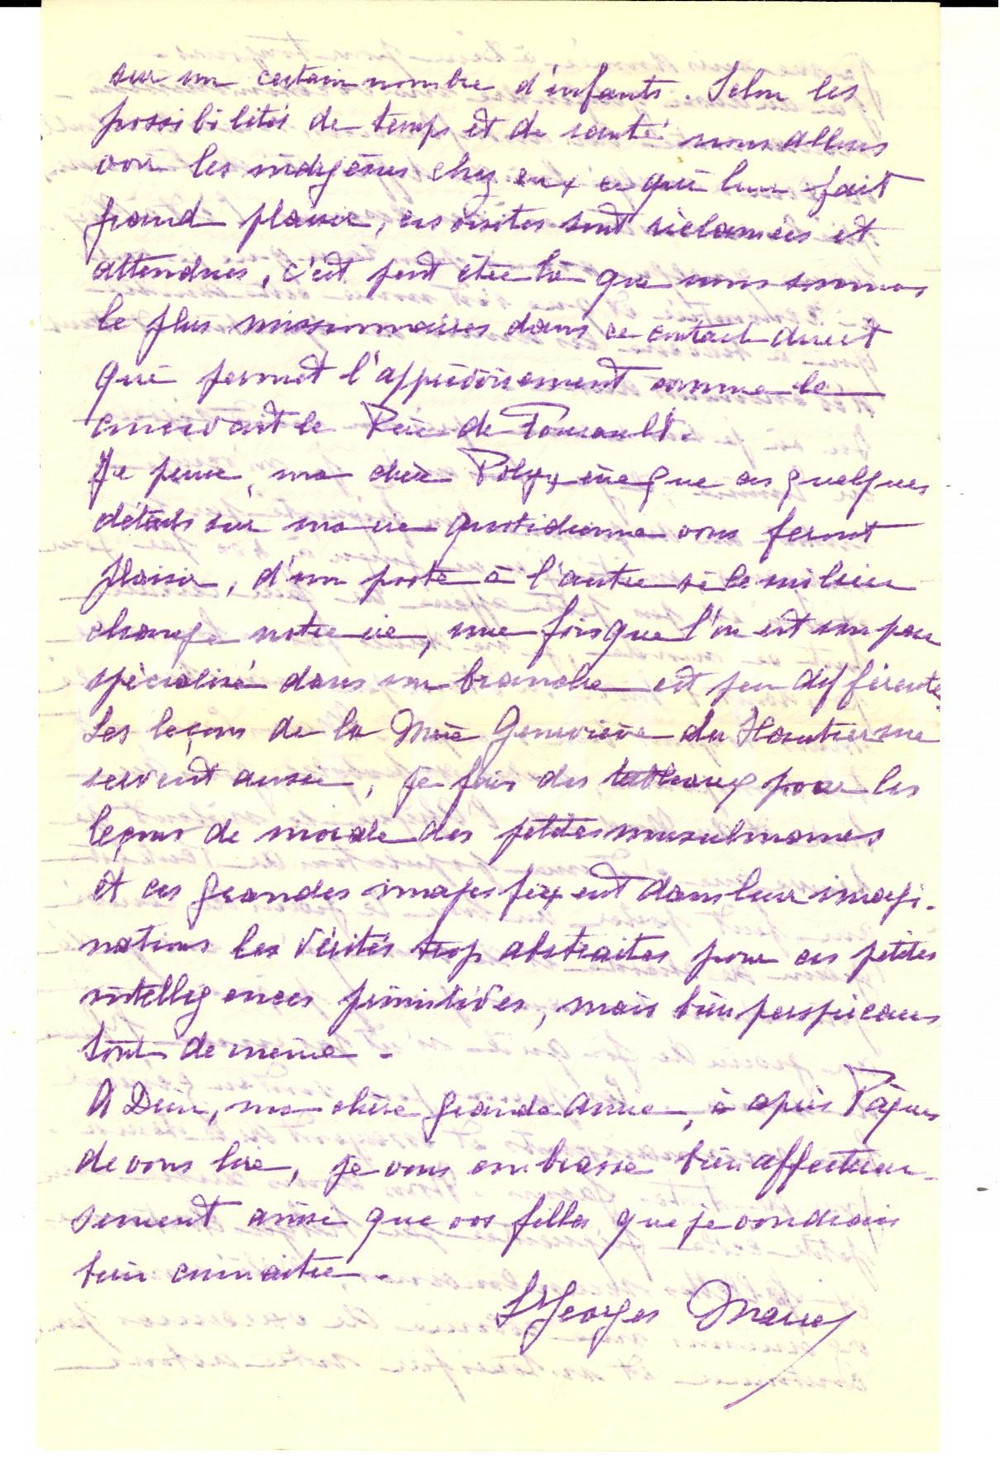 sur un certain nombre d'enfants. Selon les
possibilités de temps et de santé nous allons
voir les indigènes chez eux ce qui leur fait
grand plaisir, ces visites sont réclamées et
attendues, c'est peut être là que nous sommes
le plus missionnaires dans ce contact direct
que permet l'apprivoisement comme le
le Père de Foucauld.
Je pense, ma chère que ces quelques
détails sur ma vie quotidienne vous feront
plaisir, d'un poste à l'autre si le milieu
change notre vie, une fois que l'on est un peu
spécialisé dans une branche est peu différente.
Les leçons de la Mère Geneviève du me
servent aussi, je fais des tableaux pour les
leçons de morale des petites musulmanes
et ces grandes images fixent dans leur imagi-
nations les vérités trop abstraites pour ces petites
intelligences primitives, mais bien perspicaces
tout de même -
A Dieu, ma chère grande amie, à après Pâques
de vous lire, je vous embrasse bien affectueu-
sement ainsi que vos filles que je voudrais
bien connaitre -
Sr Georges Marie